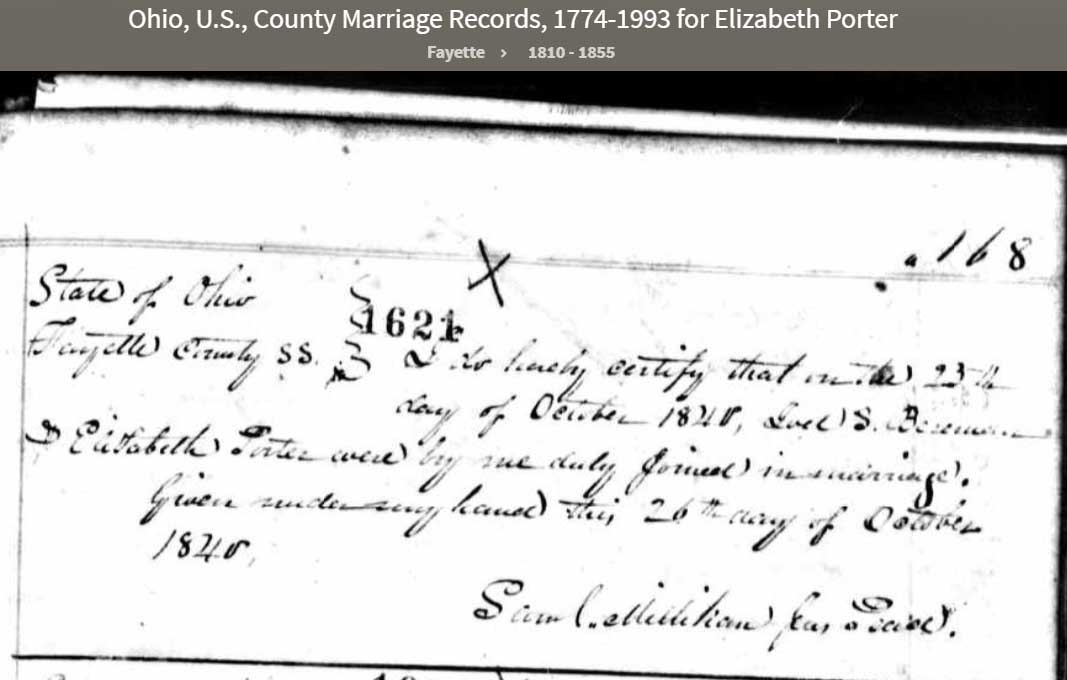 Ohio, U.S., County Marriage Records, 1774-1993 for Elizabeth Porter
Fayette > 1810 - 1855
168
State of Ohio
1621
Fayette County SS. I do hereby certify that on the
day of October 1840, S.
& Elisabeth Porter were by me duly joined in marriage.
Given under my hand this 26th day of October
1840,
Saml. Millikan Jus Peace.